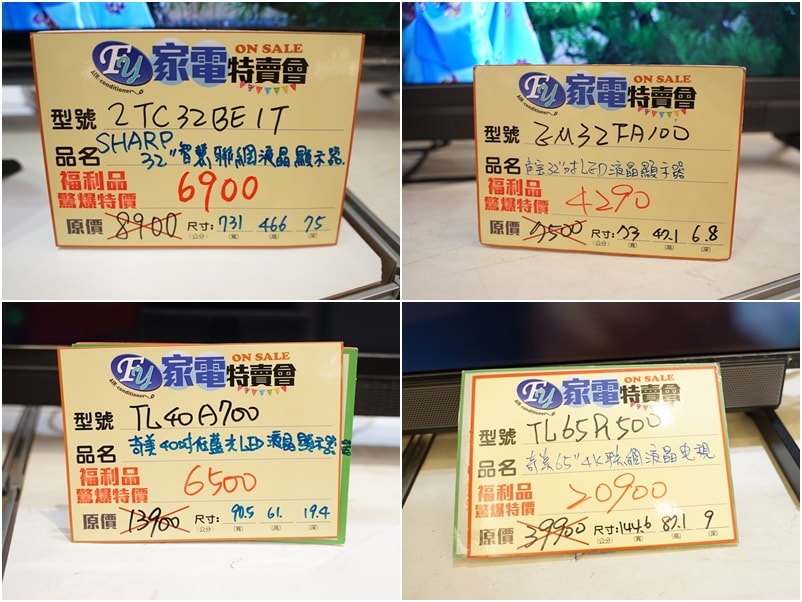 FY 家電特賣會 ON SALE
Air-conditioner
型號 2TC32BE1T
品名 SHARP
32"智慧聯網液晶顯示器
福利品
驚爆特價 6900
原價 8900 尺寸: 731 466 75
(公分) (寬) (高) (深)
FY 家電特賣會 ON SALE
Air-conditioner
型號 EM32FA100
品名 32吋LED液晶顯示器
福利品
驚爆特價 4290
原價 7500 尺寸: 73 47.1 6.8
(公分) (寬) (高) (深)
FY 家電特賣會 ON SALE
Air-conditioner
型號 TL40A700
品名 奇美40吋低藍光LED液晶顯示器
福利品
驚爆特價 6500
原價 13900 尺寸: 90.5 61. 19.4
(公分) (寬) (高) (深)
FY 家電特賣會 ON SALE
Air-conditioner
型號 TL65R500
品名 奇美65"4K聯網液晶電視
福利品
驚爆特價 20900
原價 39900 尺寸: 144.6 87.1 9
(公分) (寬) (高) (深)